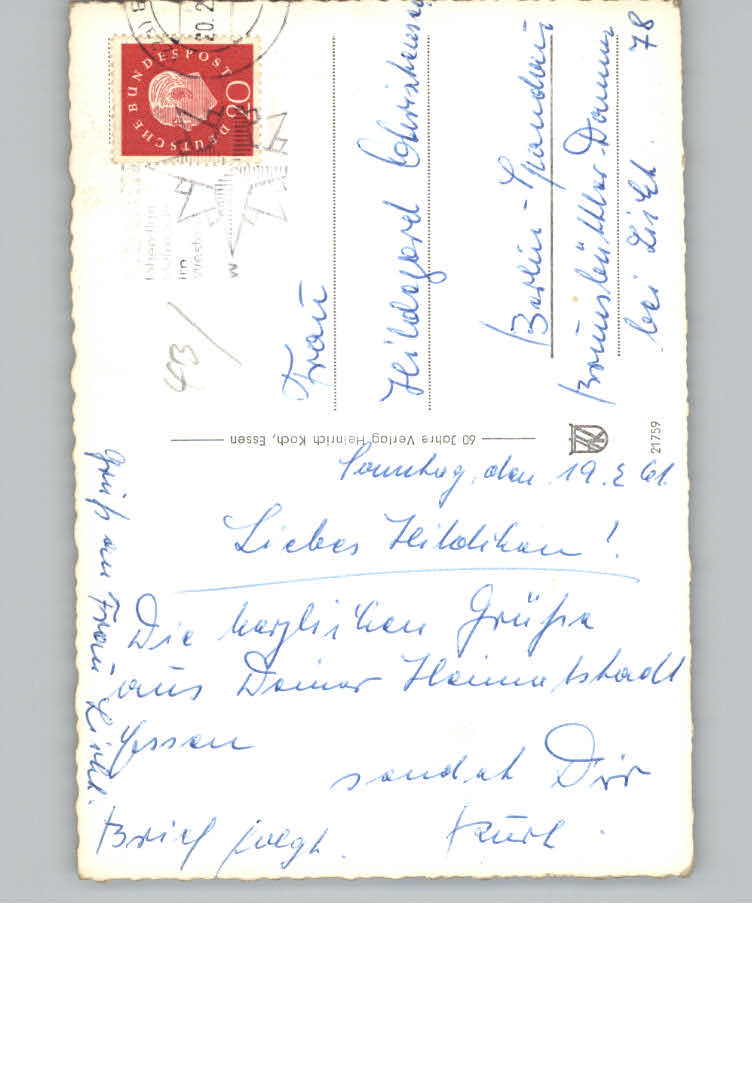 Sonntag, den 19.2.61.
Liebes Hildchen!
Die herzlichen Grüße
aus Deiner Heimatstadt
Essen
sendet Dir
Kurt.
Brief folgt.
Gruß an Frau Licht.
Frau
Hildegard
Berlin-Spandau
Brunsbüttler-Damm 78
bei Licht.
DEUTSCHE BUNDESPOST
20
20.2
im
West
W
43/
60 Jahre Verlag Heinrich Koch, Essen
21759